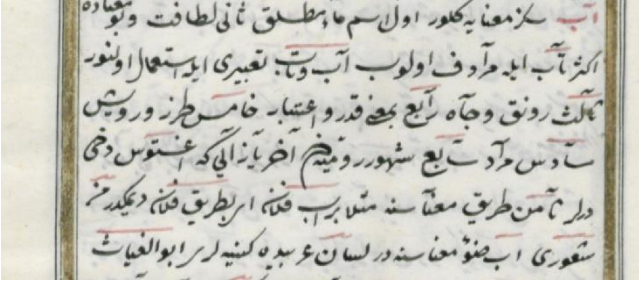 آب سكز معنايه كلور اول اسم ماء مطلق ثانى لطافت و بو معناده
اكثر تاب ايله مرادف اولوب آب وتاب تعبيرى ايله استعمال اولنور
ثالث رونق وجاه رابع بمعنى قدر و اعتبار خامس طرز و روش
سادس مراد سابع شهور آخر ياز آيى كه اغستوس دخى
ديرلر ثامن طريق معناسنه مثلا بر آب فلان اى بطريق فلان ديمكدر
شعورى آب ضوء معناسنه در لسان عربيده كنيه لرى ابو الغياث